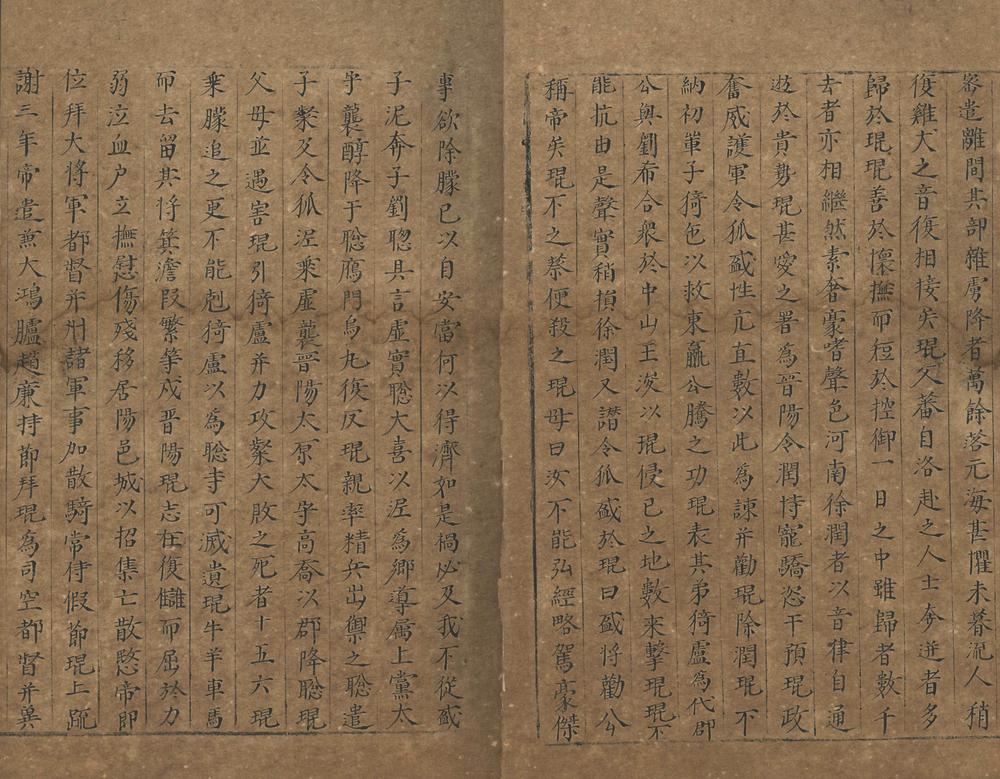 密遣離間其部雜虜降者萬餘落元海甚懼未暮流人稍
復雞犬之音復相接矣琨父蕃自洛赴之人士奔迸者多
歸於琨琨善於懷撫而短於控御一日之中雖歸者數千
去者亦相繼然素奢豪嗜聲色河南徐潤者以音律自通
遊於貴勢琨甚愛之署為晉陽令潤恃寵驕恣干預琨政
奮威護軍令狐盛性亢直數以此為諫并勸琨除潤琨不
納初單于猗㐌以救東嬴公騰之功琨表其弟猗盧為代郡
公與劉希合衆於中山王浚以琨侵已之地數来擊琨琨不
能抗由是聲實稍損徐潤又譖令狐盛於琨曰盛将勸公
稱帝矣琨不之禁便殺之琨母曰汝不能弘經略駕豪傑
專欲除朦已以自安當何以得濟如是禍必及我不從盛
子泥奔于劉聦具言虚實聦大喜以泥為鄉導属上黨太
守襲醇降于聦鴈門烏九復反琨親率精兵出禦之聦遣
子粲及令狐泥乗虚襲晋陽太原太守高喬以郡降聦琨
父母並遇害琨引猗盧并力攻粲大敗之死者十五六琨
乗朦追之更不能剋猗盧以為聦未可滅遺琨牛羊車馬
而去留其将箕澹段繁等戍晋陽琨志在復讎而屈於力
弱泣血户立撫慰傷殘移居陽邑城以招集亡散愍帝即
位拜大将軍都督并州諸軍事加散騎常侍假節琨上疏
謝三年帝遣兼大鴻臚趙廉持節拜琨為司空都督并冀